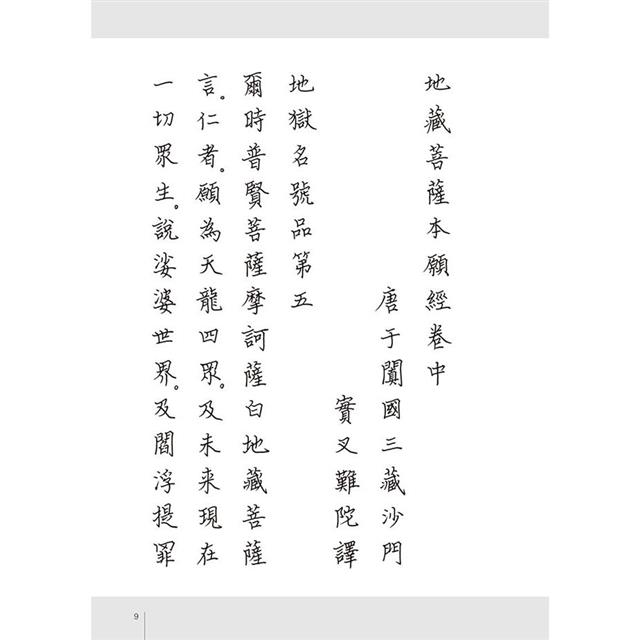 地藏菩薩本願經卷中
唐于闐國三藏沙門
實叉難陀譯
地獄名號品第五
爾時普賢菩薩摩訶薩白地藏菩薩
言。仁者。願為天龍四眾。及未来現在
一切眾生。說娑婆世界。及閻浮提罪
9